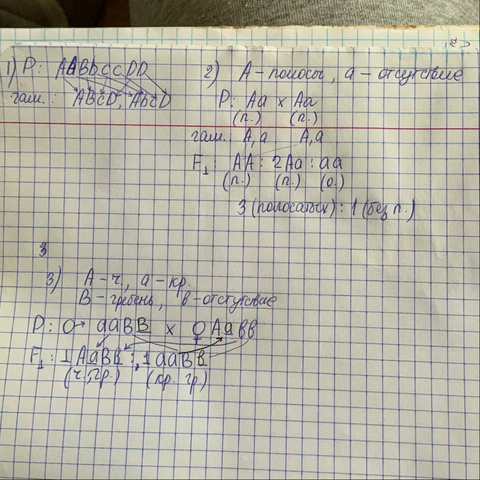 1) P: AABbccDD
гам.: ABcD, AbcD
2) А - полосы, а - отсутствие
P: Aa x Aa
(п.) (п.)
гам.: A, a A, a
F₁: AA : 2Aa : aa
(п.) (п.) (о.)
3 (полосатых) : 1 (без п.)
3
3) А - ч., а - кр.
В - гребень, в - отстутсвие
P: ♂ aaBB x ♀ Aaвв
F₁: 1 AaBв : 1 aaBв
(ч., гр.) (кр. гр.)